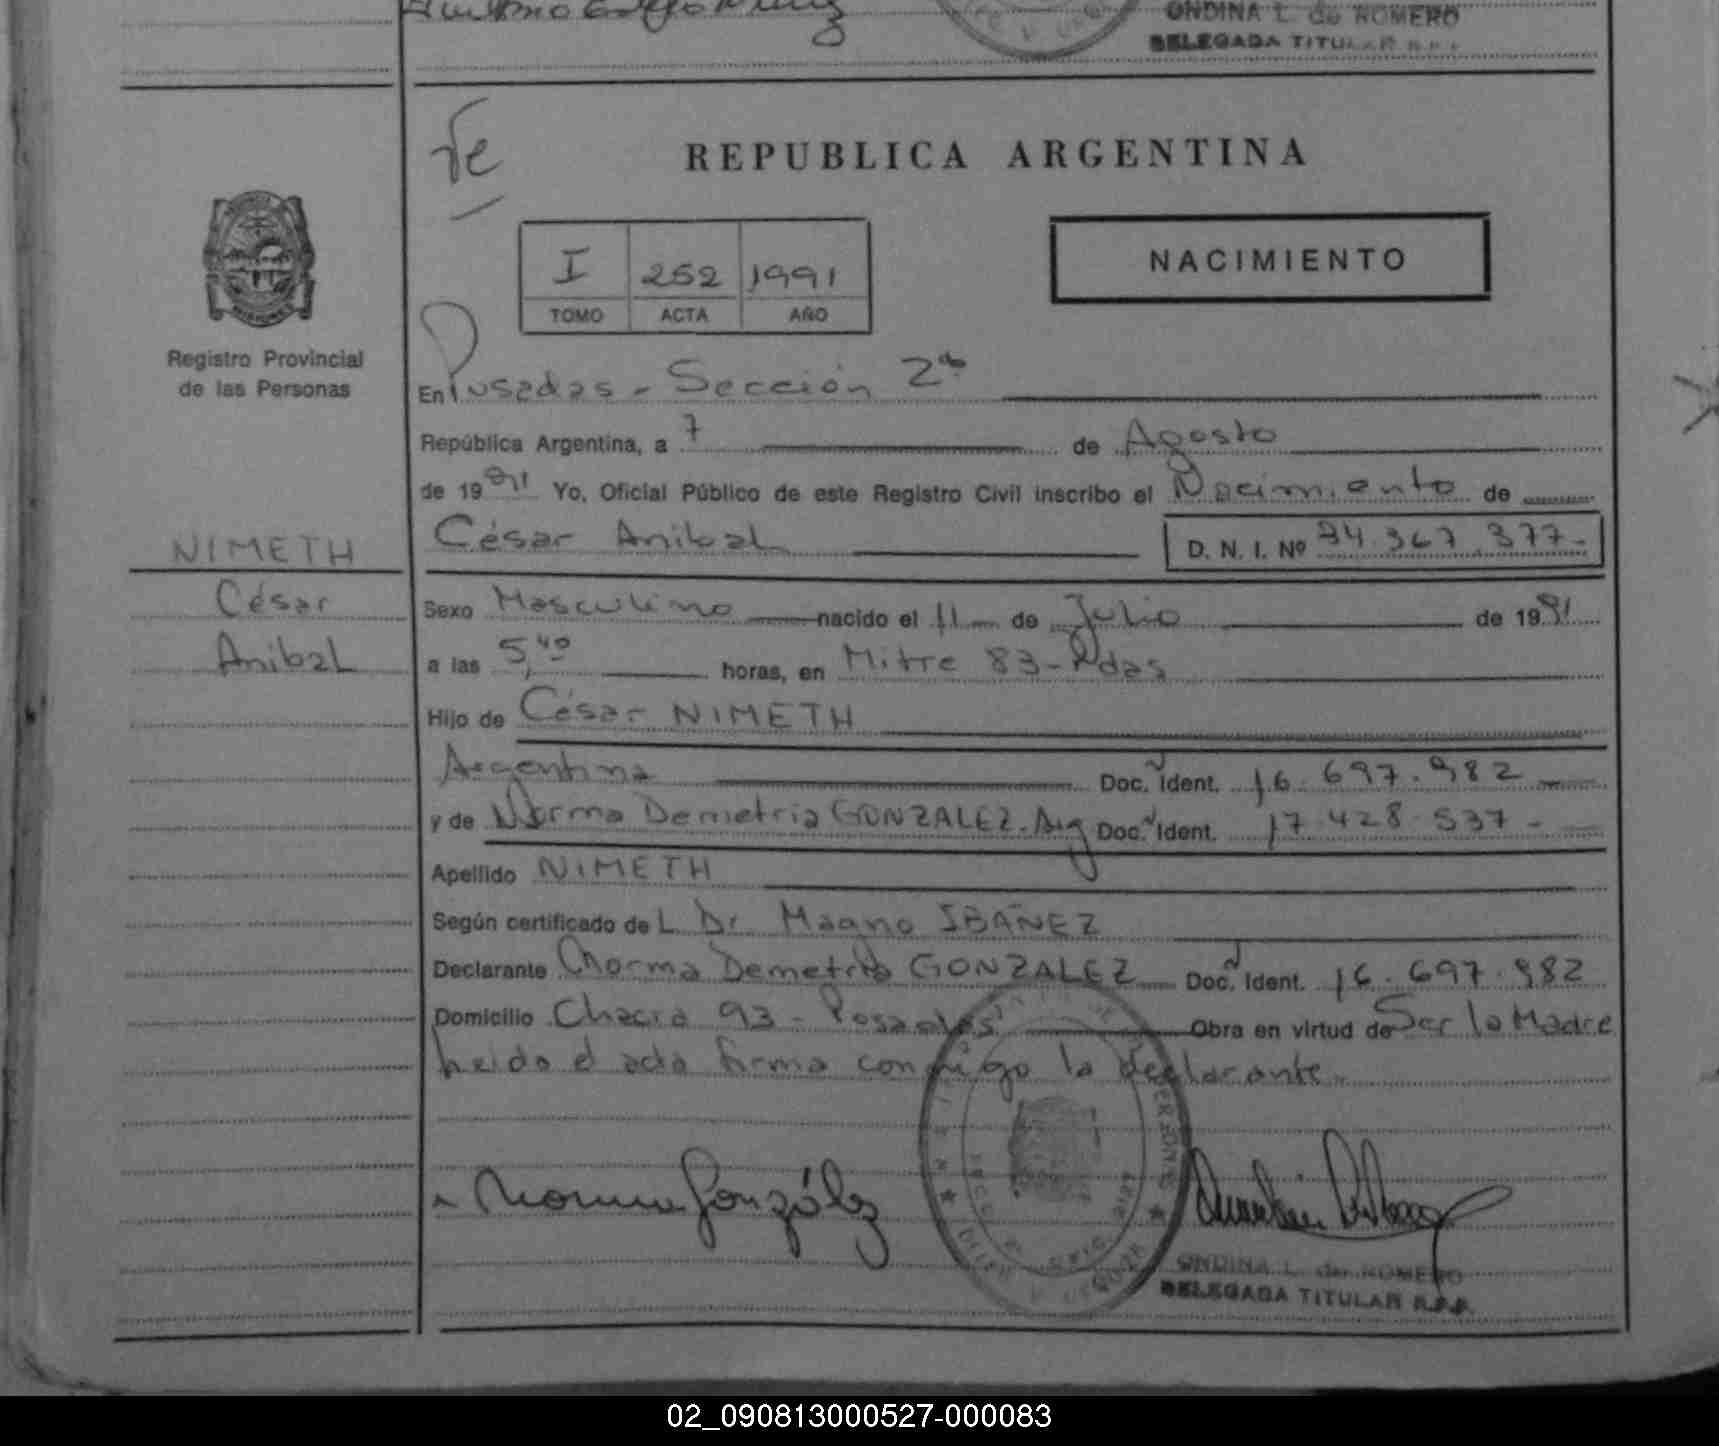 ONDINA L. de ROMERO
DELEGADA TITULAR R.P.P.
REPUBLICA ARGENTINA
I 252 1991
TOMO ACTA AÑO
NACIMIENTO
Registro Provincial
de las Personas
En Posadas - Sección 2ª
República Argentina, a 7 de Agosto
de 1991 Yo, Oficial Público de este Registro Civil inscribo el Nacimiento de
NIMETH
César Anibal D. N. I. Nº 34.367.377-
César
Anibal
Sexo Masculino nacido el 11 de Julio de 1991
a las 5,40 horas, en Mitre 83 - Pdas
Hijo de César NIMETH
Argentina Doc. Ident. 16.697.982
y de Norma Demetria GONZALEZ. Arg Doc. Ident. 17.428.537-
Apellido NIMETH
Según certificado de L Dr. Magno IBAÑEZ
Declarante Norma Demetria GONZALEZ Doc. Ident. 16.697.982
Domicilio Chacra 93 - Posadas Obra en virtud de Ser la Madre
Leida el acta firma conmigo la declarante.
Norma González
ONDINA L. de ROMERO
DELEGADA TITULAR R.P.P.
02_090813000527-000083